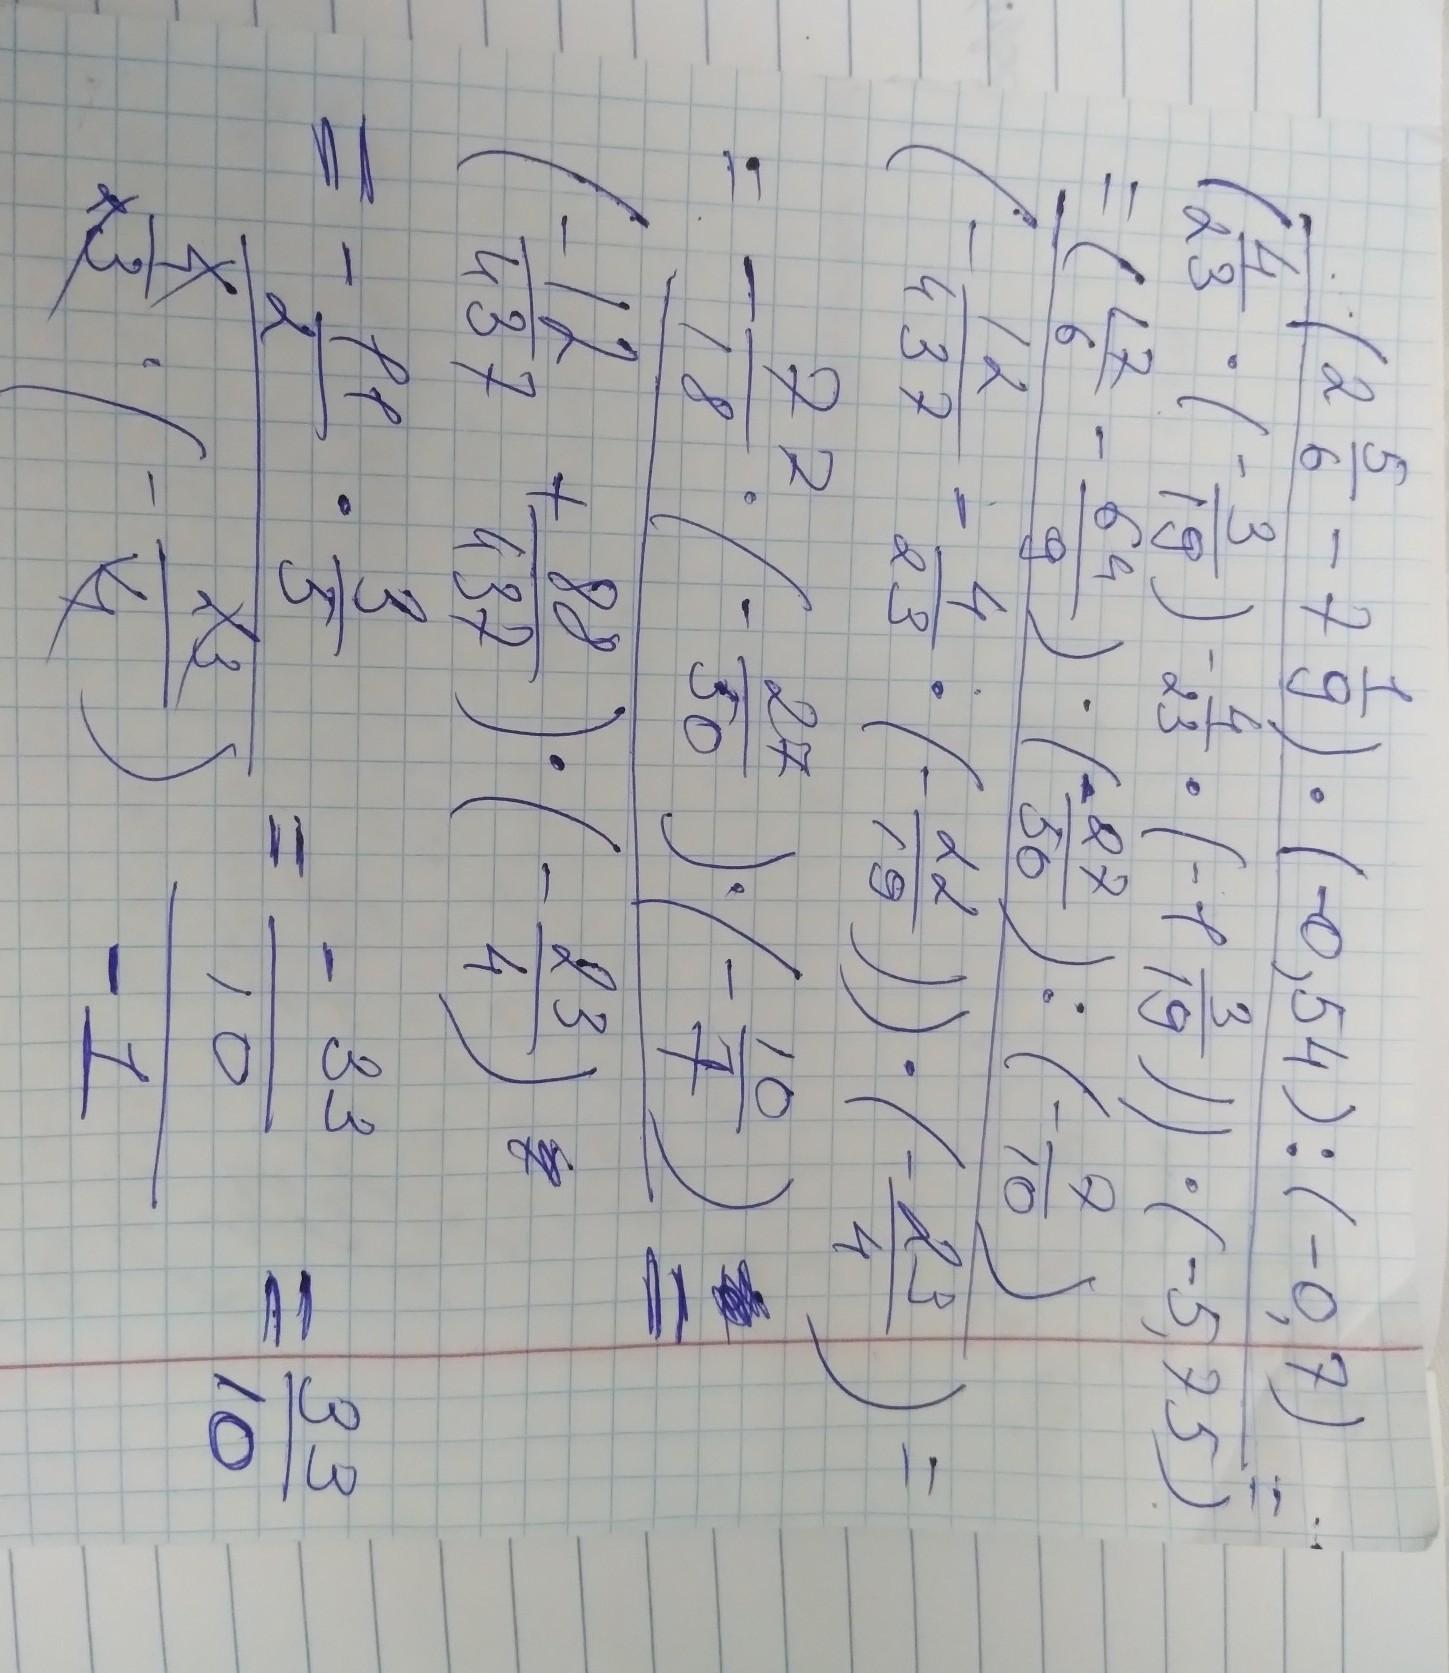 (2 5/6 - 7 1/9) · (-0,54) : (-0,7)
(4/23 · (-3/19) - 4/23 · (-1 3/19)) · (-5,75) =
= (17/6 - 64/9) · (-27/50) : (-7/10)
(-12/437 - 4/23 · (-22/19)) · (-23/4) =
= -77/18 · (-27/50) · (-10/7)
(-12/437 + 88/437) · (-23/4) =
= -11/2 · 3/5
4/23 · (-23/4)
= -33/10
-1
= 33/10